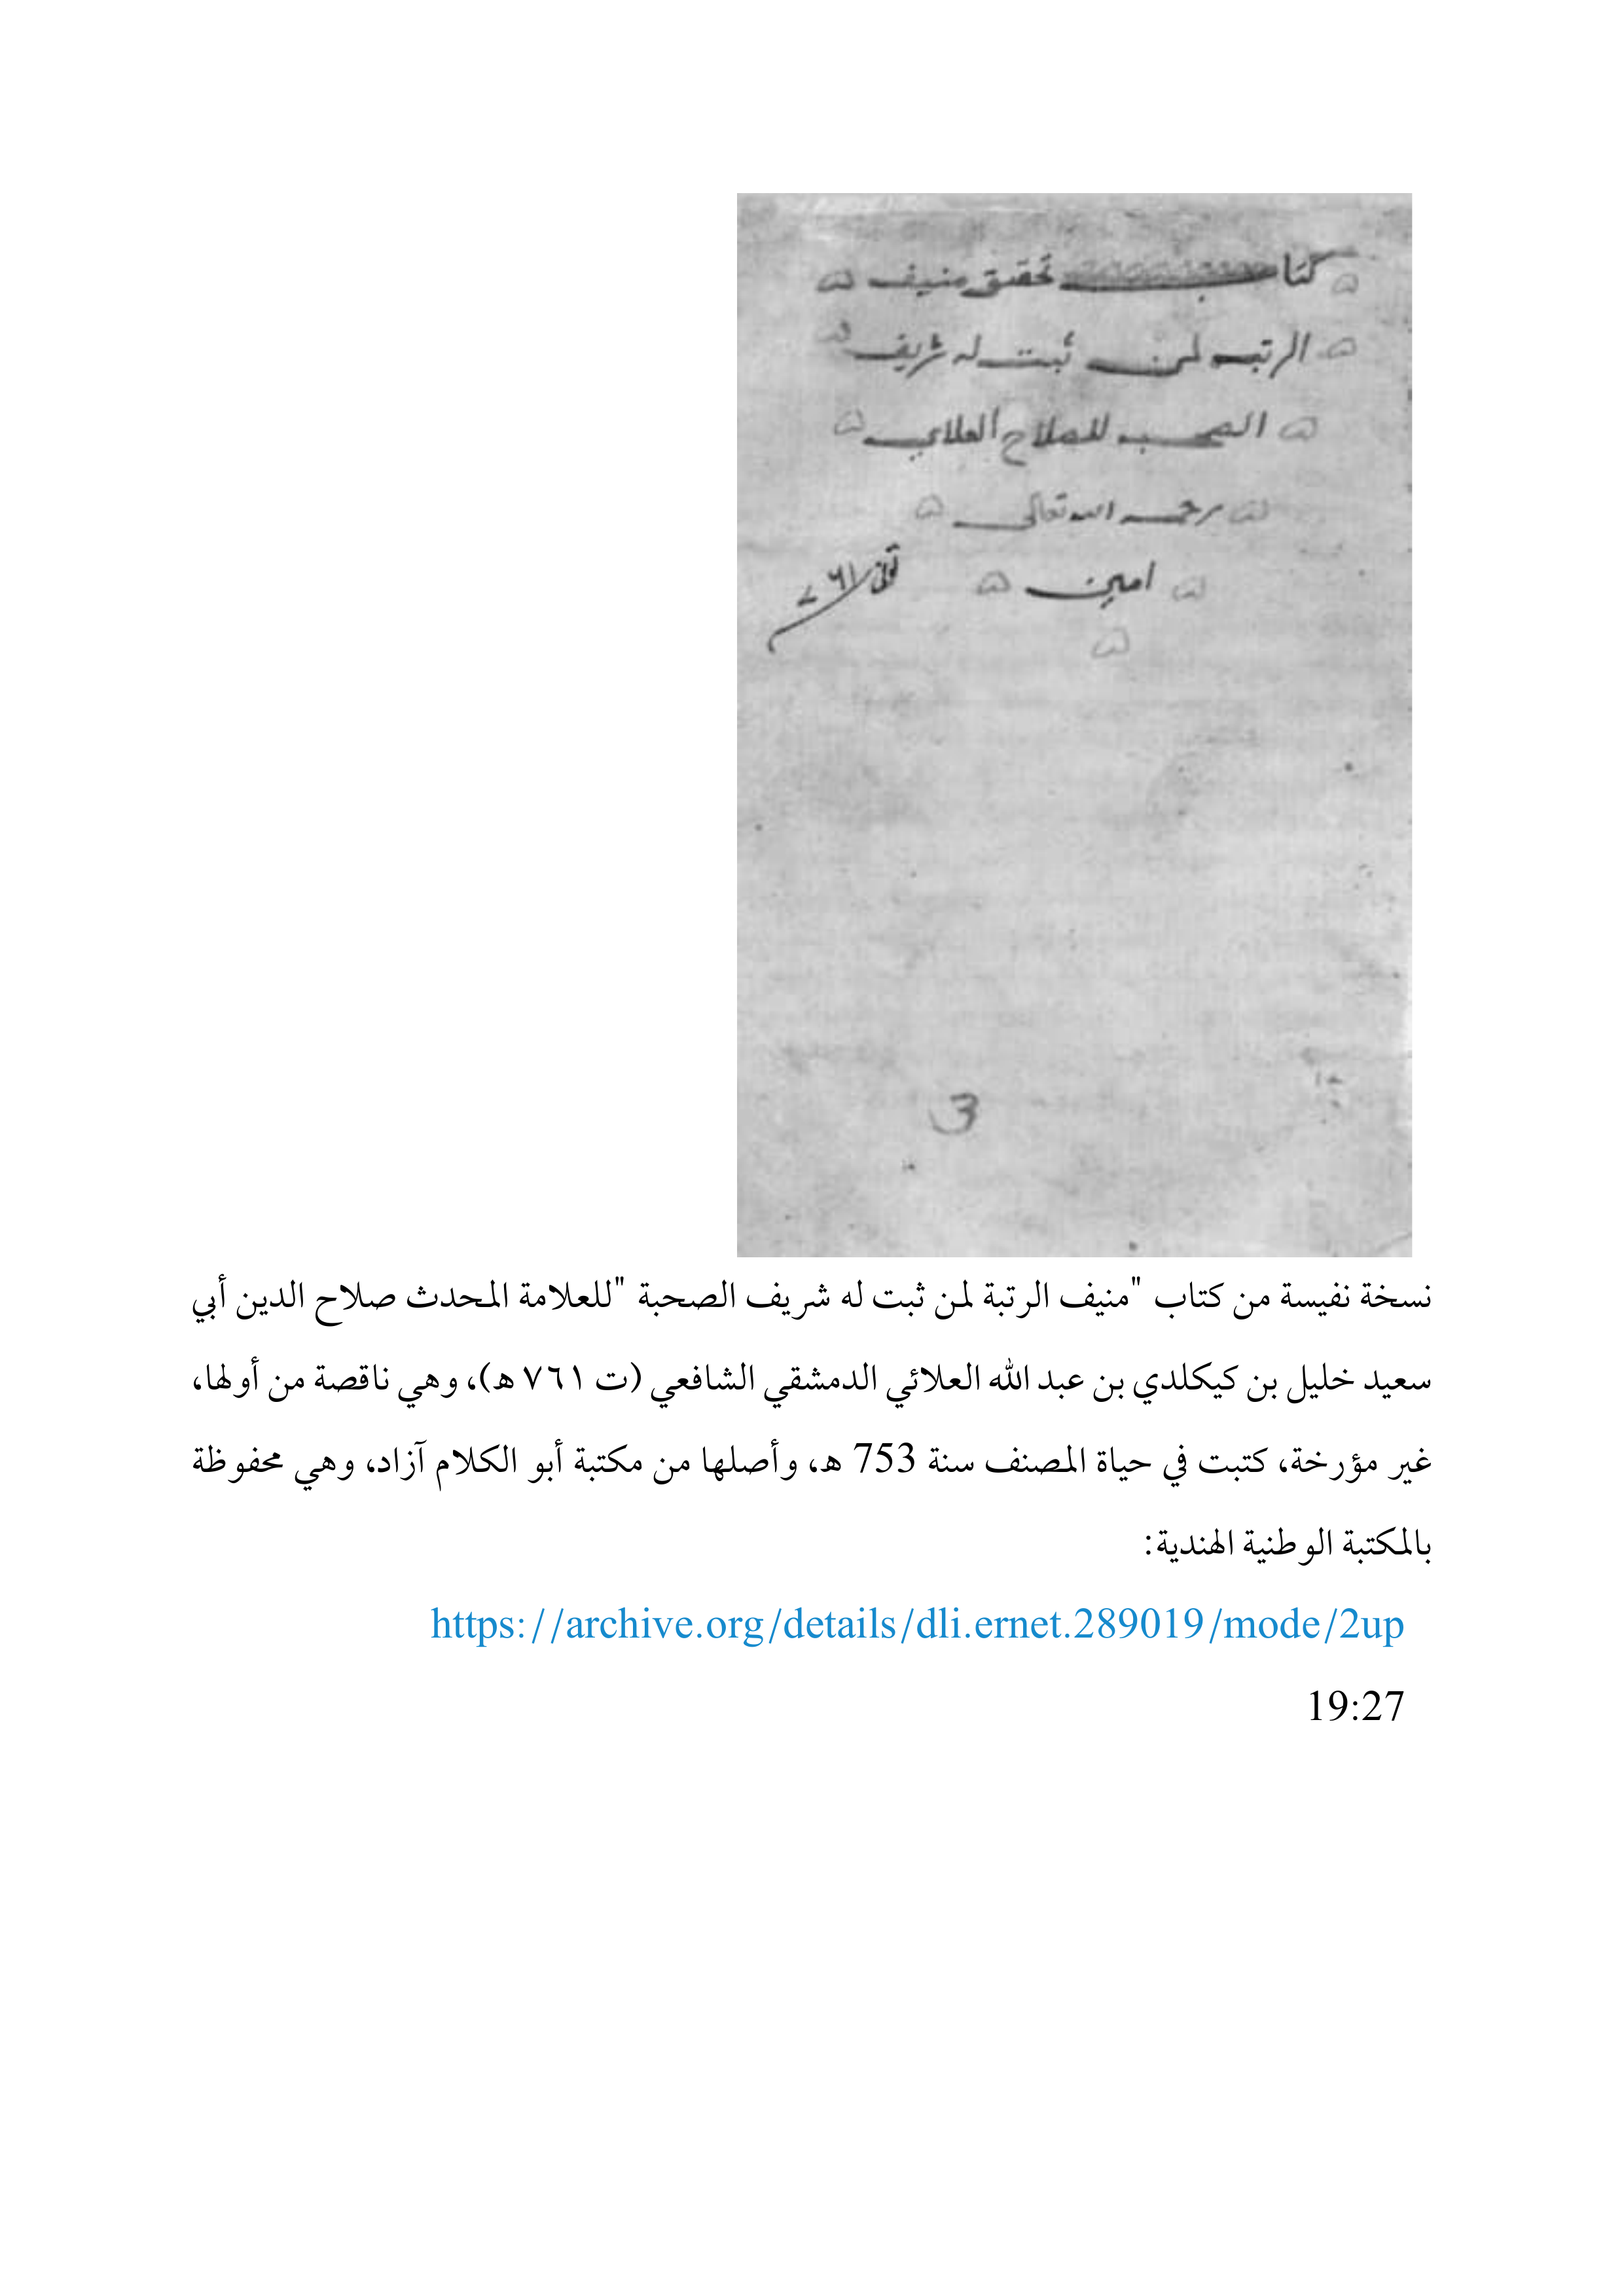 كتاب تحقيق منيف
الرتبه لمن ثبت له شريف
الصحبه للصلاح العلاي
رحمه الله تعالى
امين
توفي ٧٦١
3
نسخة نفيسة من كتاب "منيف الرتبة لمن ثبت له شريف الصحبة "للعلامة المحدث صلاح الدين أبي
سعيد خليل بن كيكلدي بن عبد الله العلائي الدمشقي الشافعي (ت ٧٦١ ه)، وهي ناقصة من أولها،
غير مؤرخة، كتبت في حياة المصنف سنة 753 ه، وأصلها من مكتبة أبو الكلام آزاد، وهي محفوظة
بالمكتبة الوطنية الهندية:
https://archive.org/details/dli.ernet.289019/mode/2up
19:27